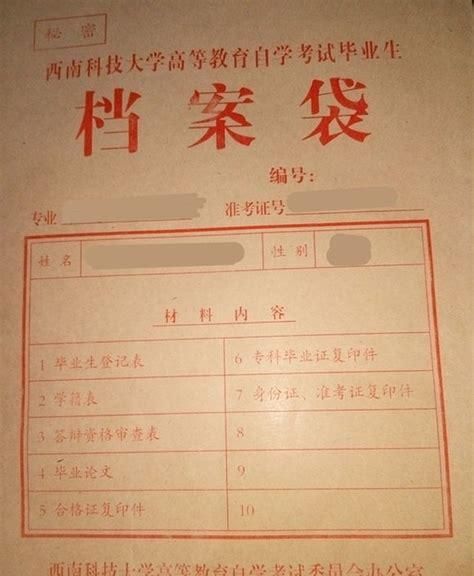 秘密
西南科技大学高等教育自学考试毕业生
档案袋
编号:
专业 准考证号
姓名 性别
材料内容
1 毕业生登记表 6 专科毕业证复印件
2 学籍表 7 身份证、准考证复印件
3 答辩资格审查表 8
4 毕业论文 9
5 合格证复印件 10
西南科技大学高等教育自学考试委员会办公室